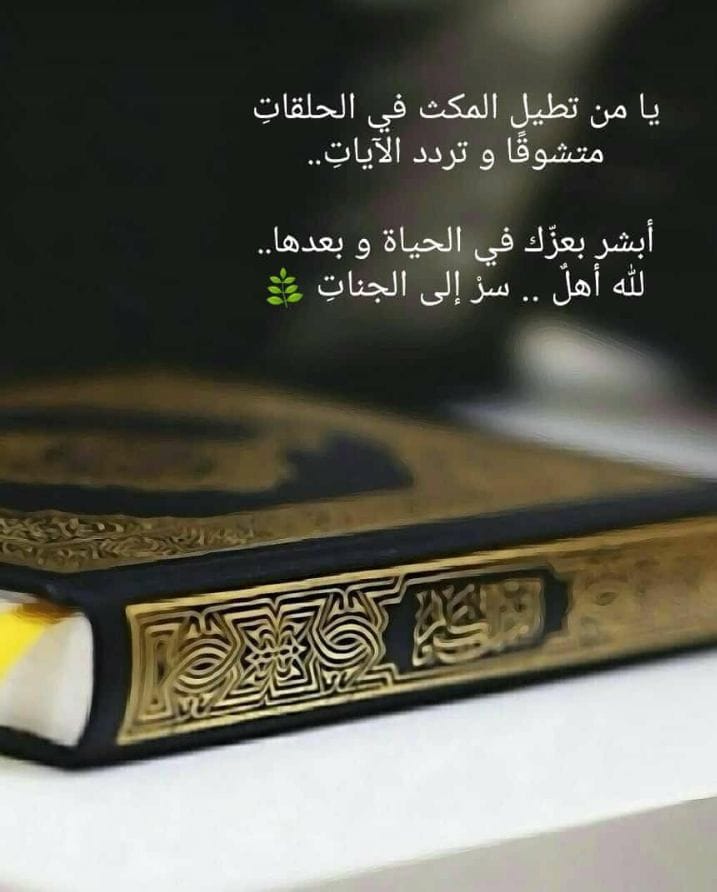 يا من تطيل المكث في الحلقاتِ
متشوقًا و تردد الآياتِ..
أبشر بعزّك في الحياة و بعدها..
لله أهلٌ .. سرْ إلى الجناتِ 🌿